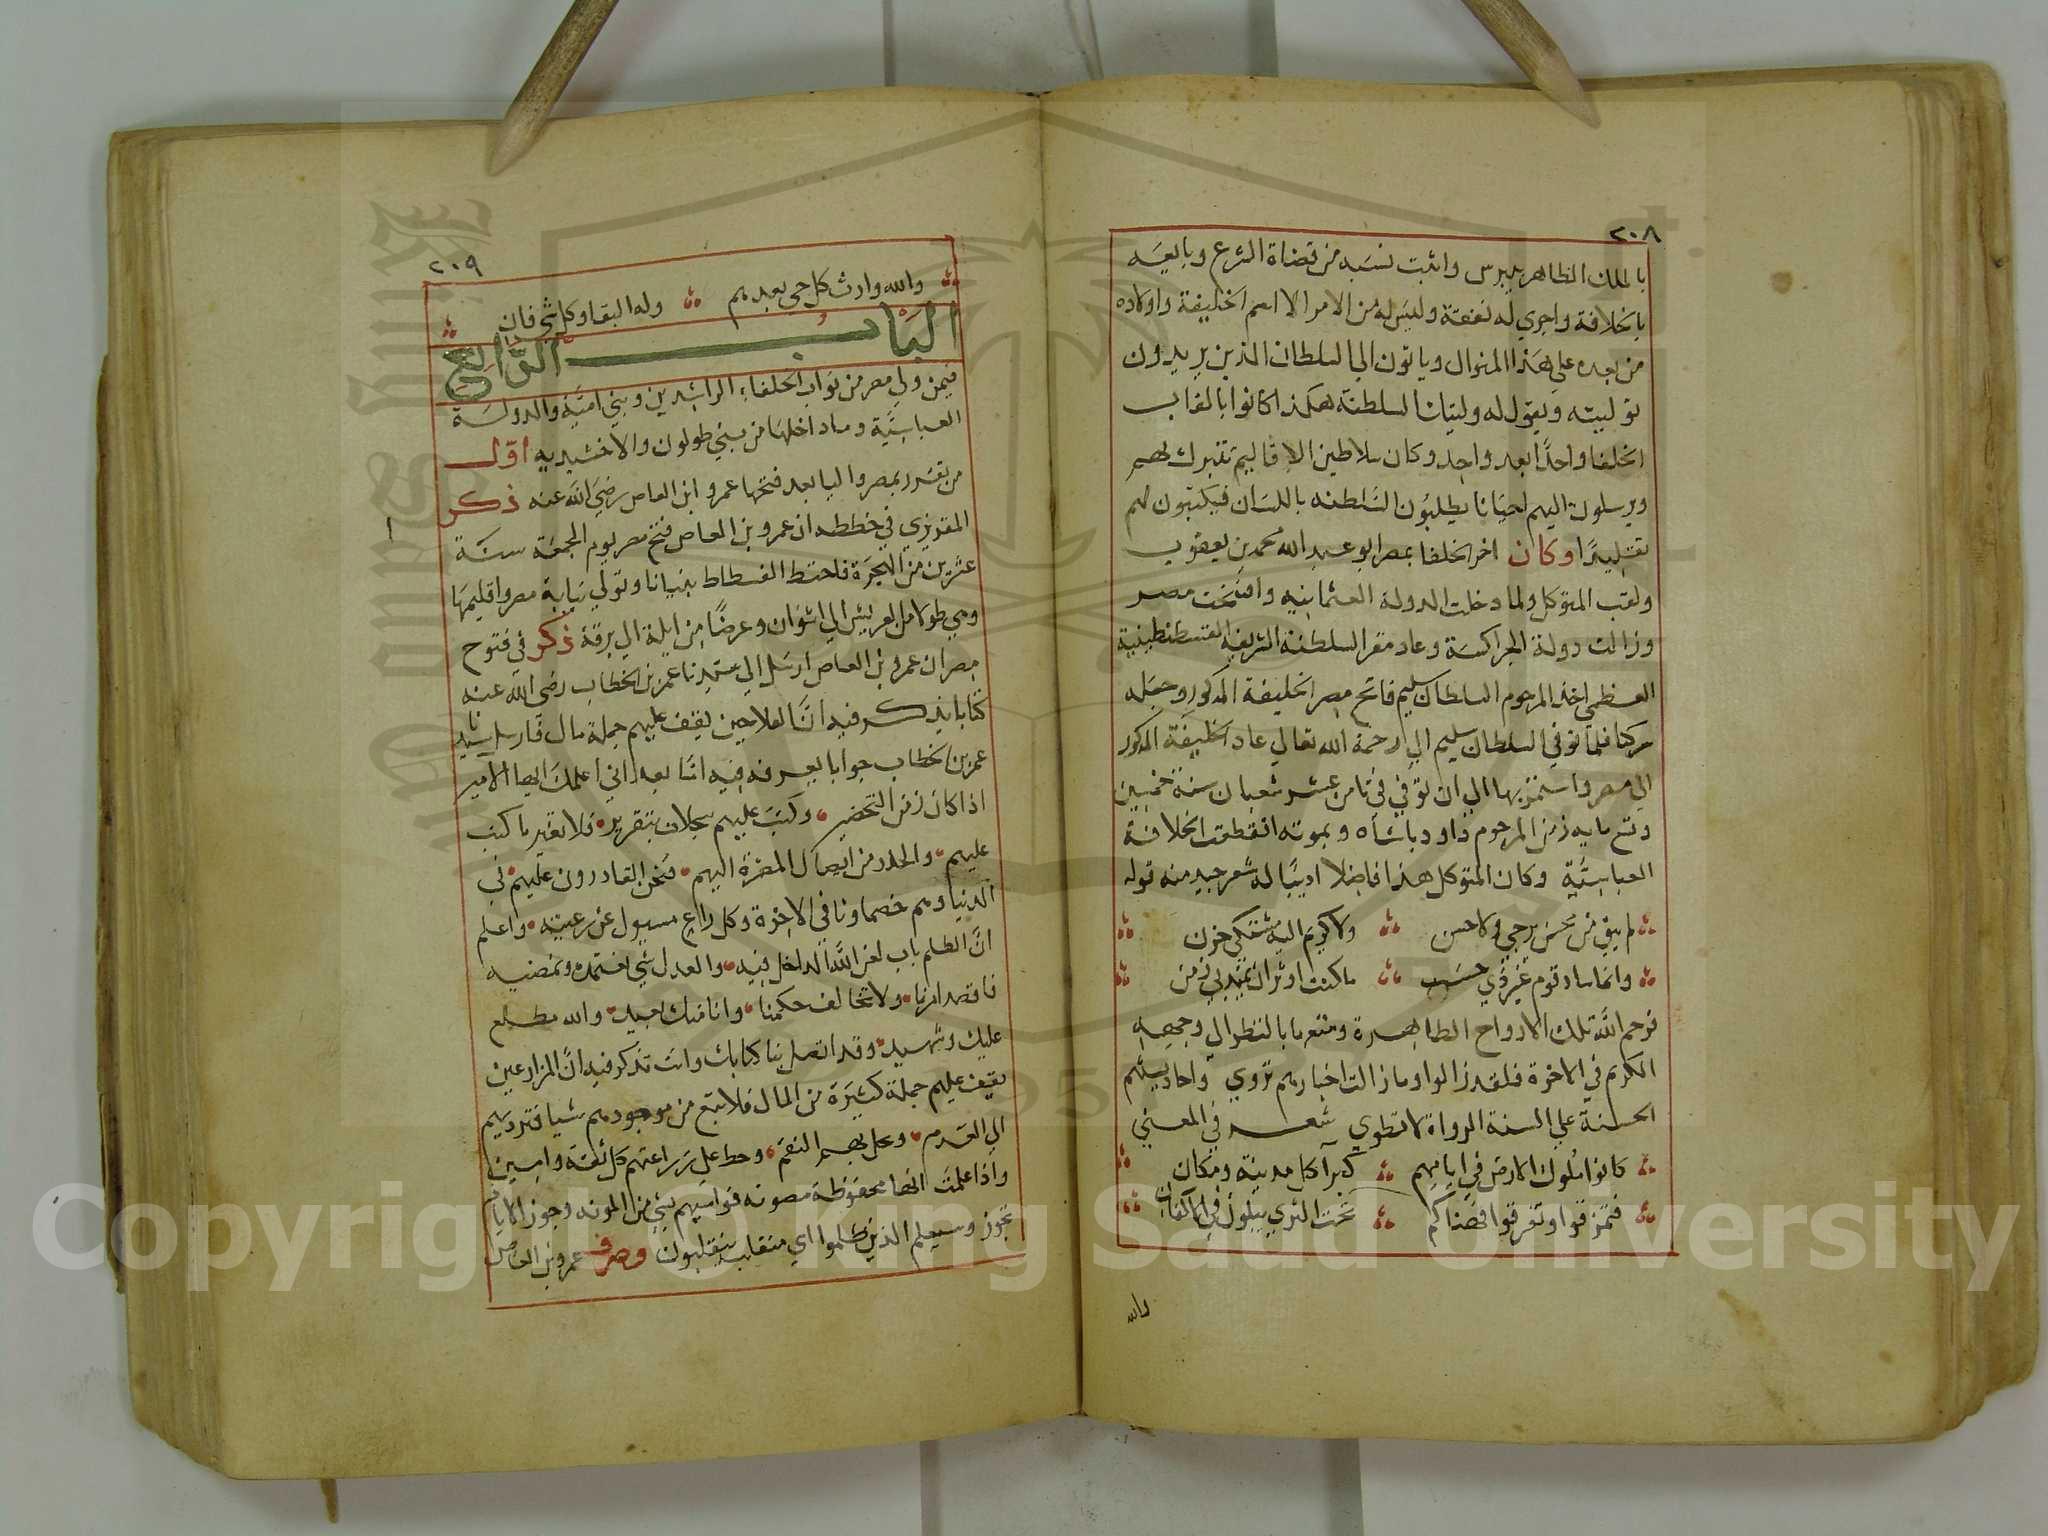 ٢٠٨
بالملك الظاهر بيبرس واثبت نسبه من قضاة الشرع وبايعه
بالخلافة واجري له نفقة وليس له من الامر الا اسم الخليفة واولاده
من بعده علي هذا المنوال وياتون الي السلطان الذين يريدون
توليته ويقول له وليتك السلطنة هكذا كانوا بالقاب
الخلفا واحدًا بعد واحد وكان سلاطين الاقاليم تتبرك بهم
ويرسلون اليهم احيانا يطلبون السلطنه باللسان فيكتبون لهم
تقليدًا وكان اخر الخلفا بمصر ابو عبد الله محمد بن يعقوب
ولقب المتوكل ولما دخلت الدولة العثمانيه وافتتحت مصر
وزالت دولة الجراكسة وعاد مقر السلطنة الشريفه القسطنطينية
العظمي اخذ المرحوم السلطان سليم فاتح مصر الخليفة المذكور وجعله
بركا فلما توفي السلطان سليم الي رحمة الله تعالي عاد الخليفة المذكور
الي مصر واستمر بها الي ان توفي في ثامن عشر شعبان سنة خمسين
وتسع مايه زمن المرحوم داود باشاه وبموته انقطعت الخلافة
العباسية وكان المتوكل هذا فاضلا اديبًا له شعر جيد منه قوله
لم يبق من محسن يرجي ولا حسن ولا كريم اليه مشتكي حزن
وانما ساد قوم غير ذي حسب ما كنت اوثر ان يمتد بي زمن
فرحم الله تلك الارواح الطاهرة ومتعها بالنظر الي وجهه
الكريم في الاخرة فلقد زالوا وما زالت اخبارهم تروي واحاديثهم
الحسنة علي السنة الرواة لا تطوي شعر في المعني
كانوا ملوك الارض في ايامهم كبرآ كل مدينة ومكان
فتمزقوا وتفرقوا فهناكم تحت الثري يبلون في الاكفان
والله
٢٠٩
والله وارث كل حي بعدهم وله البقا وكل شي فان
الباب الرابع
فيمن ولي مصر من نواب الخلفاء الراشدين وبني امية والدولة
العباسية وما داخلها من بني طولون والاخشيديه اول
من تقرر بمصر واليا بعد فتحها عمرو ابن العاص رضي الله عنه ذكر
المقريزي في خططه ان عمرو بن العاص فتح مصر يوم الجمعة سنة
عشرين من الهجرة فاختط الفسطاط بنيانا وتولي نيابة مصر واقليمها
وهي طولا من العريش الي اسوان وعرضًا من ايلة الي برقة ذكر في فتوح
مصر ان عمرو بن العاص ارسل الي سيدنا عمر بن الخطاب رضي الله عنه
كتابا يذكر فيه ان الفلاحين يقف عليهم جملة مال فارسل سيدنا
عمر بن الخطاب جوابا يعرفه فيه اما بعد اني اعلمك ايها الامير
اذا كان زمن التحضير وكتبت عليهم سجلات بتقرير فلا تغير ما كتب
عليهم والحذر من ايصال المضرة اليهم فنحن القادرون عليهم في
الدنيا وهم خصماونا في الاخرة وكل راع مسيول عن رعيته واعلم
ان الظلم باب لعن الله الداخل فيه والعدل شي نعتمده ونمضيه
فاقصد امرنا ولا تخالف حكمنا وانا منك بعيد والله مطلع
عليك وشهيد وقد اتصل بنا كتابك وانت تذكر فيه ان المزارعين
يقف عليهم جملة كثيرة من المال فلا تبع من موجودهم شيا فترديهم
الي العدم وتحل بهم النقم وحط علي زراعتهم كل ثقة وامين
واذا علمت انها محفوظة مصونه فواسيهم بشي من المونه وجوز الايام
تجوز وسيعلم الذين ظلموا اي منقلب ينقلبون وصرف عمرو بن العاص
Copyright © King Saud University